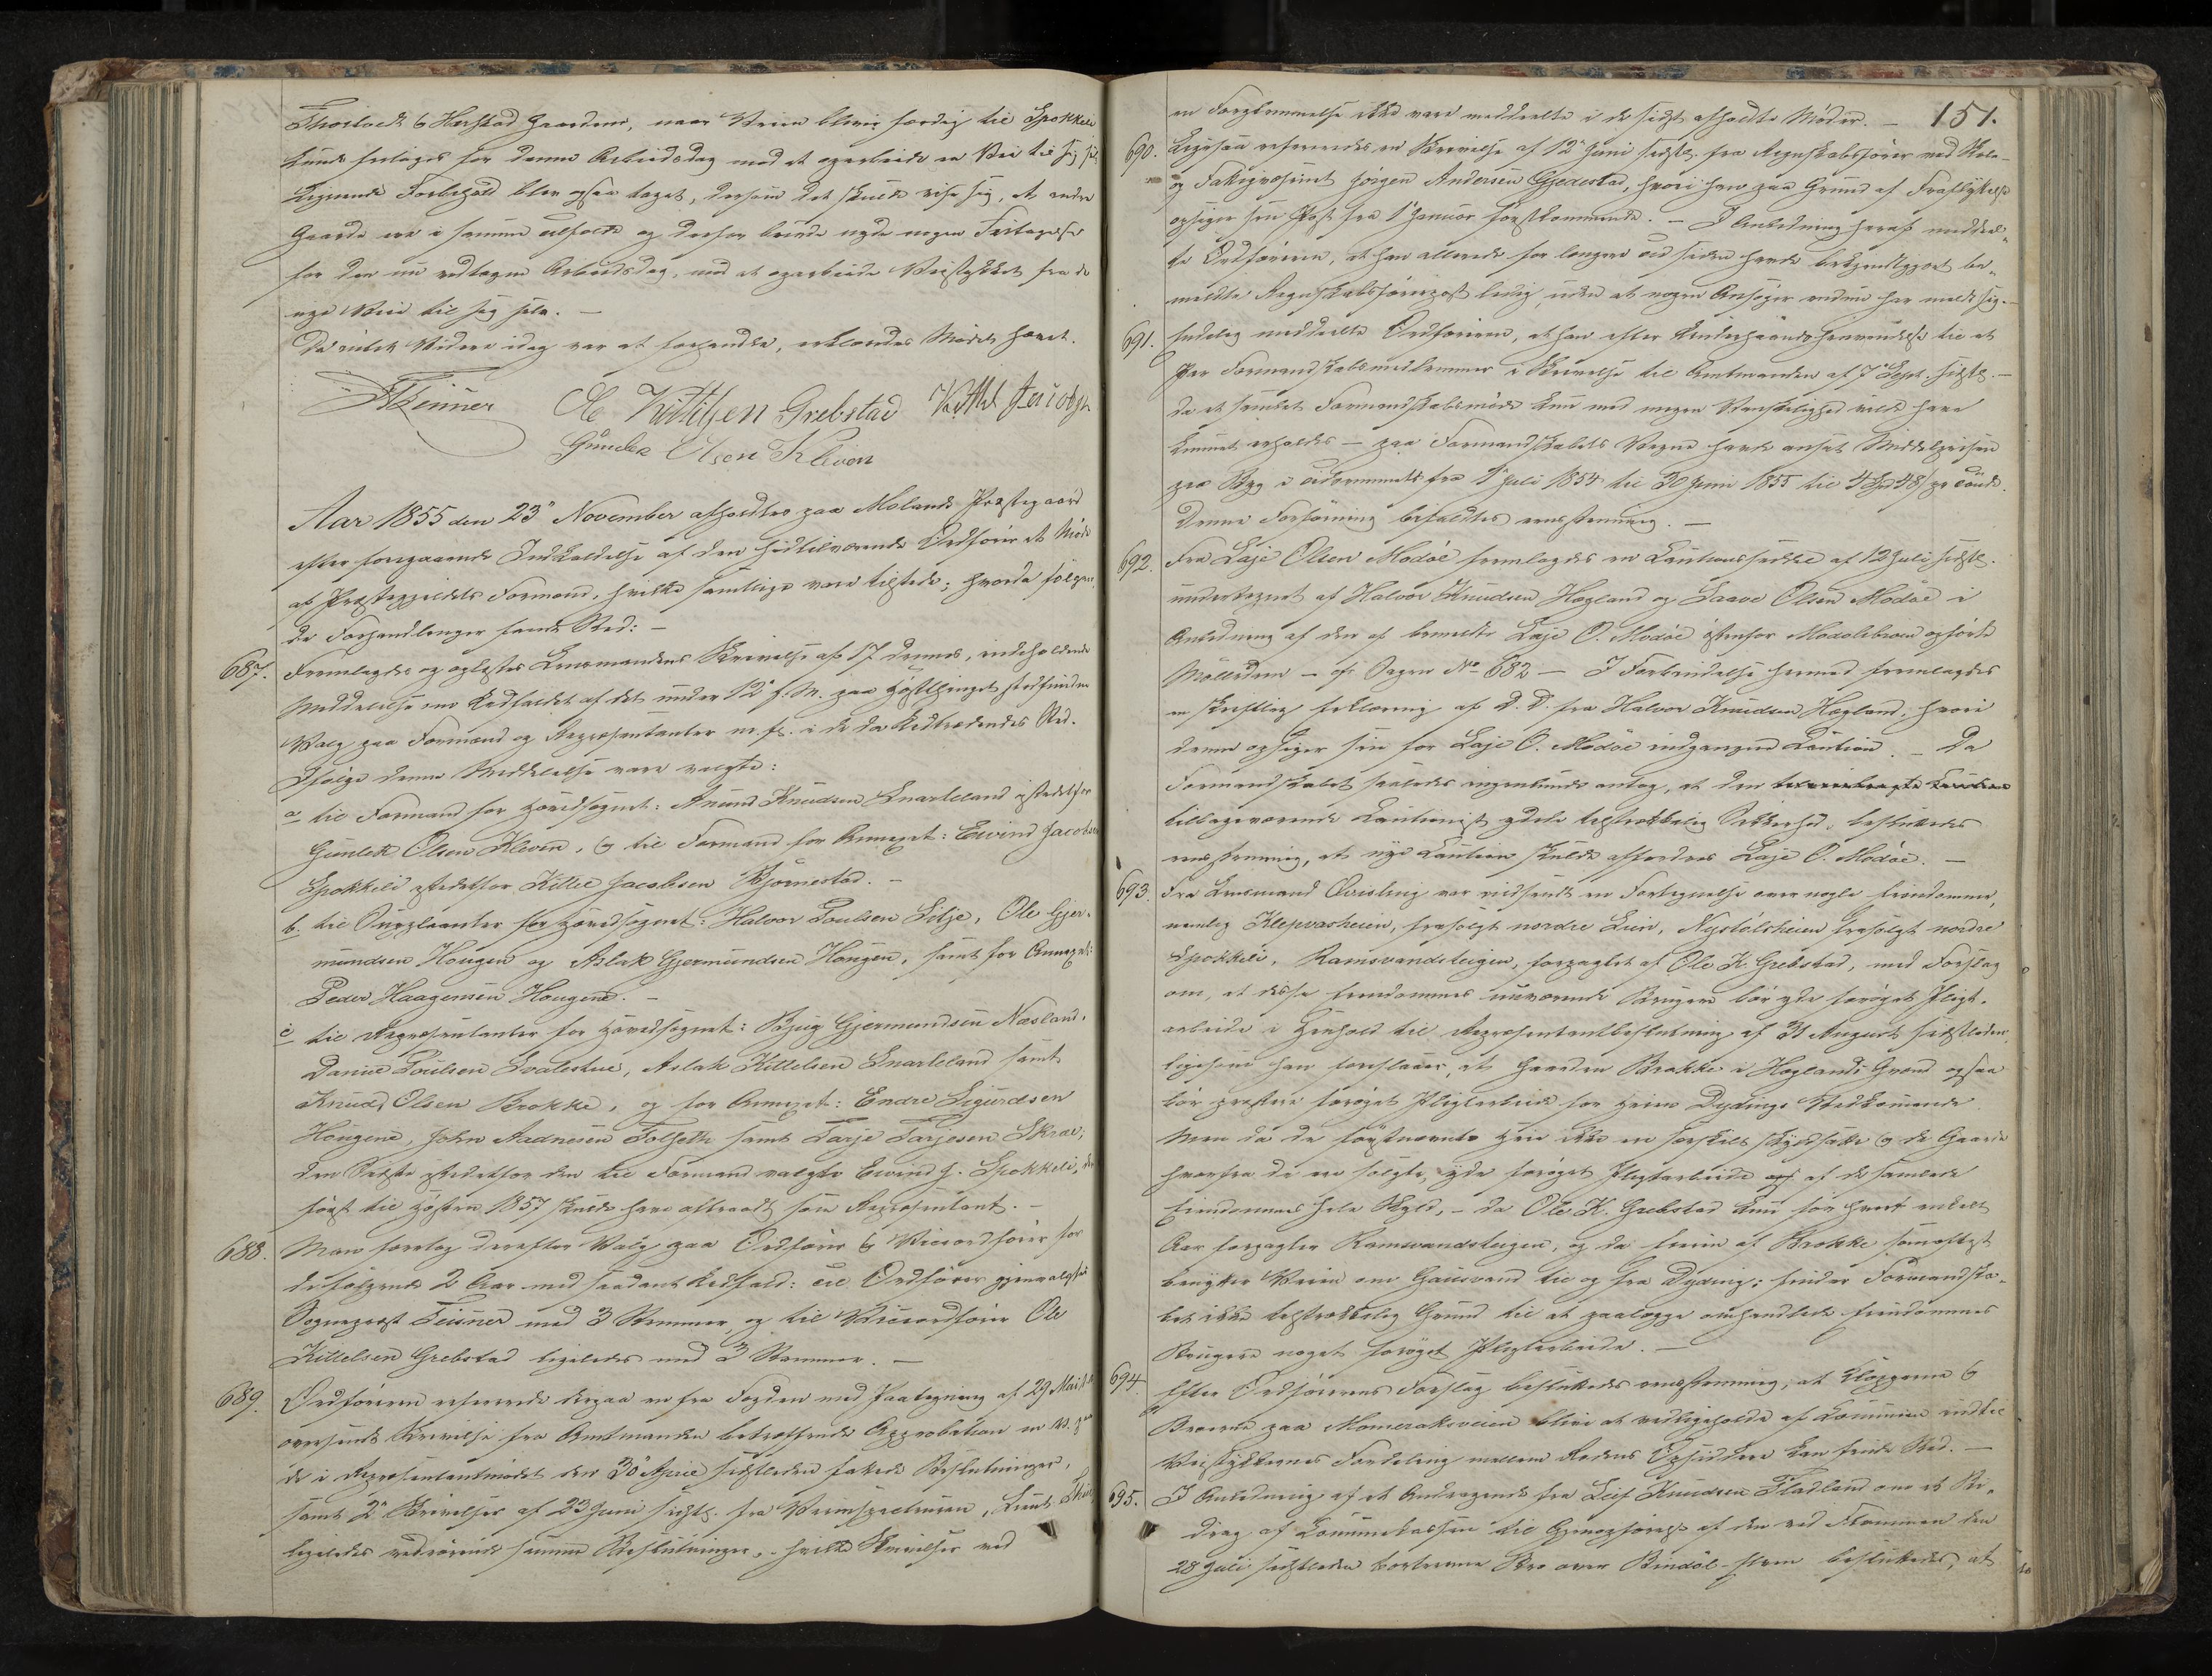 Thorlede & Harstad Gaardene, naar Veien bliver færdig til Spokkeli
kunde fritages for denne Arbeidsdag mod at oparbeide en Vei til sig selv
Lignende Forbehold blev ogsaa taget, dersom det skulde vise sig, at andre
Gaarde ere i samme Tilfælde og derfor burde nyde nogen Fritagelse
for den nu vedtagne Arbeidsdag, mod at oparbeide Veistykket fra de
nye Veie til sig selv. —
Da intet Videre idag var at forhandle, erklæredes Mödet hævet.
Ole Kittilsen Grebstad Kittel Jacobsen
Gunder Olsen Kleven
Aar 1855 den 23de November afholdtes paa Molands Præstegaard
efter foregaaende Indkaldelse af den hidtilværende Ordförer et Möde
af Præstegjeldets Formænd, hvilke samtlige vare tilstede; hvorda fölgen
de Forhandlinger fandt Sted: —
687. Fremlagdes og oplæstes Lensmandens Skrivelse af 17 dennes, indeholdende
Meddelelse om Udfaldet af det under 12te f. M. paa Hösttinget stedfundne
Valg paa Formænd og Repræsentanter m. fl. i de da Udtrædendes Sted.
Ifölge denne Meddelelse vare valgte:
a til Formand for Hovedsognet: Anund Knudsen Snarteland istedetfor
Gunder Olsen Kleven, & til Formand for Annexet: Eivind Jacobsen
Spokkeli istedetfor Kittel Jacobsen Bjornestad. —
b. til Suppleanter for Hovedsognet: Halvor Poulsen Lilje, Ole Gjer-
mundsen Hougen og Aslak Gjermundsen Hougen, samt for Annexet:
Peder Haagensen Hougene. —
c til Repræsentanter for Hovedsognet: Bjug Gjermundsen Næsland,
Daniel Poulsen Svalestue, Aslak Kittelsen Snarteland samt
Knud Olsen Brokke, og for Annexet: Endre Sigurdsen
Hougene, John Aadnesen Tolseth samt Tarje Tarjesen Skræ,
den Sidste istedetfor den til Formand valgte Eivind J. Spokkeli, der
först til Hösten 1857 skulde have aftraadt som Repræsentant. —
688. Man foretog derefter Valg paa Ordförer & Viceordförer for
de fölgende 2 Aar med saadant Udfald: til Ordförer gjenvalgtes
Sognepræst Teisner med 3 Stemmer, og til Viceordförer Ole
Kittelsen Grebstad ligeledes med 3 Stemmer. —
689. Ordföreren refererede derpaa en fra Fogden med Paategning af 29 Mai
oversendt Skrivelse fra Amtmanden betræffende Approbation
de i Repræsentantmödet den 30te April sidstleden fattede Beslutninger,
samt 2de Skrivelser af 23 Juni sidstl. fra Veiinspecteuren,
ligeledes vedrörende samme Beslutninger, — hvilke Skrivelser ved
151.
en Forglemmelse ikke vare meddeelte i de sidst afholdte Möder. —
690. Ligesaa refereredes en Skrivelse af 12te Juni sidstl. fra Regnskabsförer ved Skole-
og Fattigvæsenet Jörgen Andersen Gjedestad, hvori han paa Grund af Fraflyttelse
opsiger sin Post fra 1 Januar förstkommende. — I Anledning heraf meddeel-
te Ordföreren, at han allerede for længere Tid siden havde bekjendtgjort be-
meldte Regnskabsförerpost ledig, uden at nogen Ansöger endnu har meldt sig. —
691. Endelig meddeelte Ordföreren, at han efter Underhaandshenvendelse til et
Par Formandskabsmedlemmer i Skrivelse til Amtmanden af 7de Sept. sidstl. —
da et samlet Formandskabsmöde kun med megen Vanskelighed vilde have
kunnet erholdes — paa Formandskabets Vegne havde ansat Middelprisen
paa Byg i Tidsrummet fra 1 Juli 1854 til 30 Juni 1855 til 4 Spd 48 s pr Tönde.
Denne Forföining bifaldtes eenstemmig. —
692. Fra Laje Olsen Modöe fremlagdes en Cautionsseddel af 12 Juli sidstl.
undertegnet af Halvor Knudsen Hægland og Saave Olsen Modöe i
Anledning af den af bemeldte Laje O. Modöe östenfor Modalsbroen opförte
Mölledam — cfr Sagen No 682 — I Forbindelse hermed fremlagdes
en skriftlig Erklæring af D. D. fra Halvor Knudsen Hægland, hvori
denne opsiger sin for Laje O. Modöe indgangne Caution. — Da
Formandskabet saaledes ingenlunde antog, at den
tilbageværende Cautionist ydede tilstrækkelig Sikkerhed, besluttedes
eenstemmig, at nye Caution skulde affordres Laje O. Modöe. —
693. Fra Lensmand Qvisling var indsendt en Fortegnelse over nogle Eiendomme,
nemlig Klepvasheien, frasolgt nordre Lien, Nystölsheien frasolgt nordre
Spokkeli, Ramsvandsteigen, forpagtet af Ole K. Grebstad, med Forslag
om, at disse Eiendommes nuværende Brugere bör yde foröget Pligt-
arbeide i Henhold til Repræsentantbeslutning af 31 August sidstleden,
ligesom han foreslaaer, at Gaarden Brokke i Hæglands Grænd ogsaa
bör præstere foröget Pligtarbeide for Heien Dyding Vedkommende.
Men da de förstnævnte Heie ikke ere særskilt skyldsatte & de Gaarde
hvorfra de ere solgte, yde foröget Pligtarbeide af de samlede
Eiendommes hele Skyld, — da Ole K. Grebstad kun for hvert enkelt
Aar forpagter Ramsvandsteigen, og da Eieren af Brokke somoftest
benytter Veien om Gausvand til og fra Dyding: finder Formandska-
bet ikke tilstrækkelig Grund til at paalægge omhandlede Eiendommes
Brugere noget foröget Pligtarbeide. —
694. Efter Ordförerens Forslag besluttedes eenstemmig, at Klopperne &
Broerne paa Momeraksveien blive at vedligeholde af Communen indtil
Veistykkernes Fordeling mellem Rodens Opsiddere kan finde Sted. —
695. I Anledning af et Andragende fra Leif Knudsen Fladland om et Bi-
drag af Communekassen til Gjenopförelse af den ved Flommen den
28 Juli sidstleden borttagne Bro over Bindöl-Elven besluttedes, at